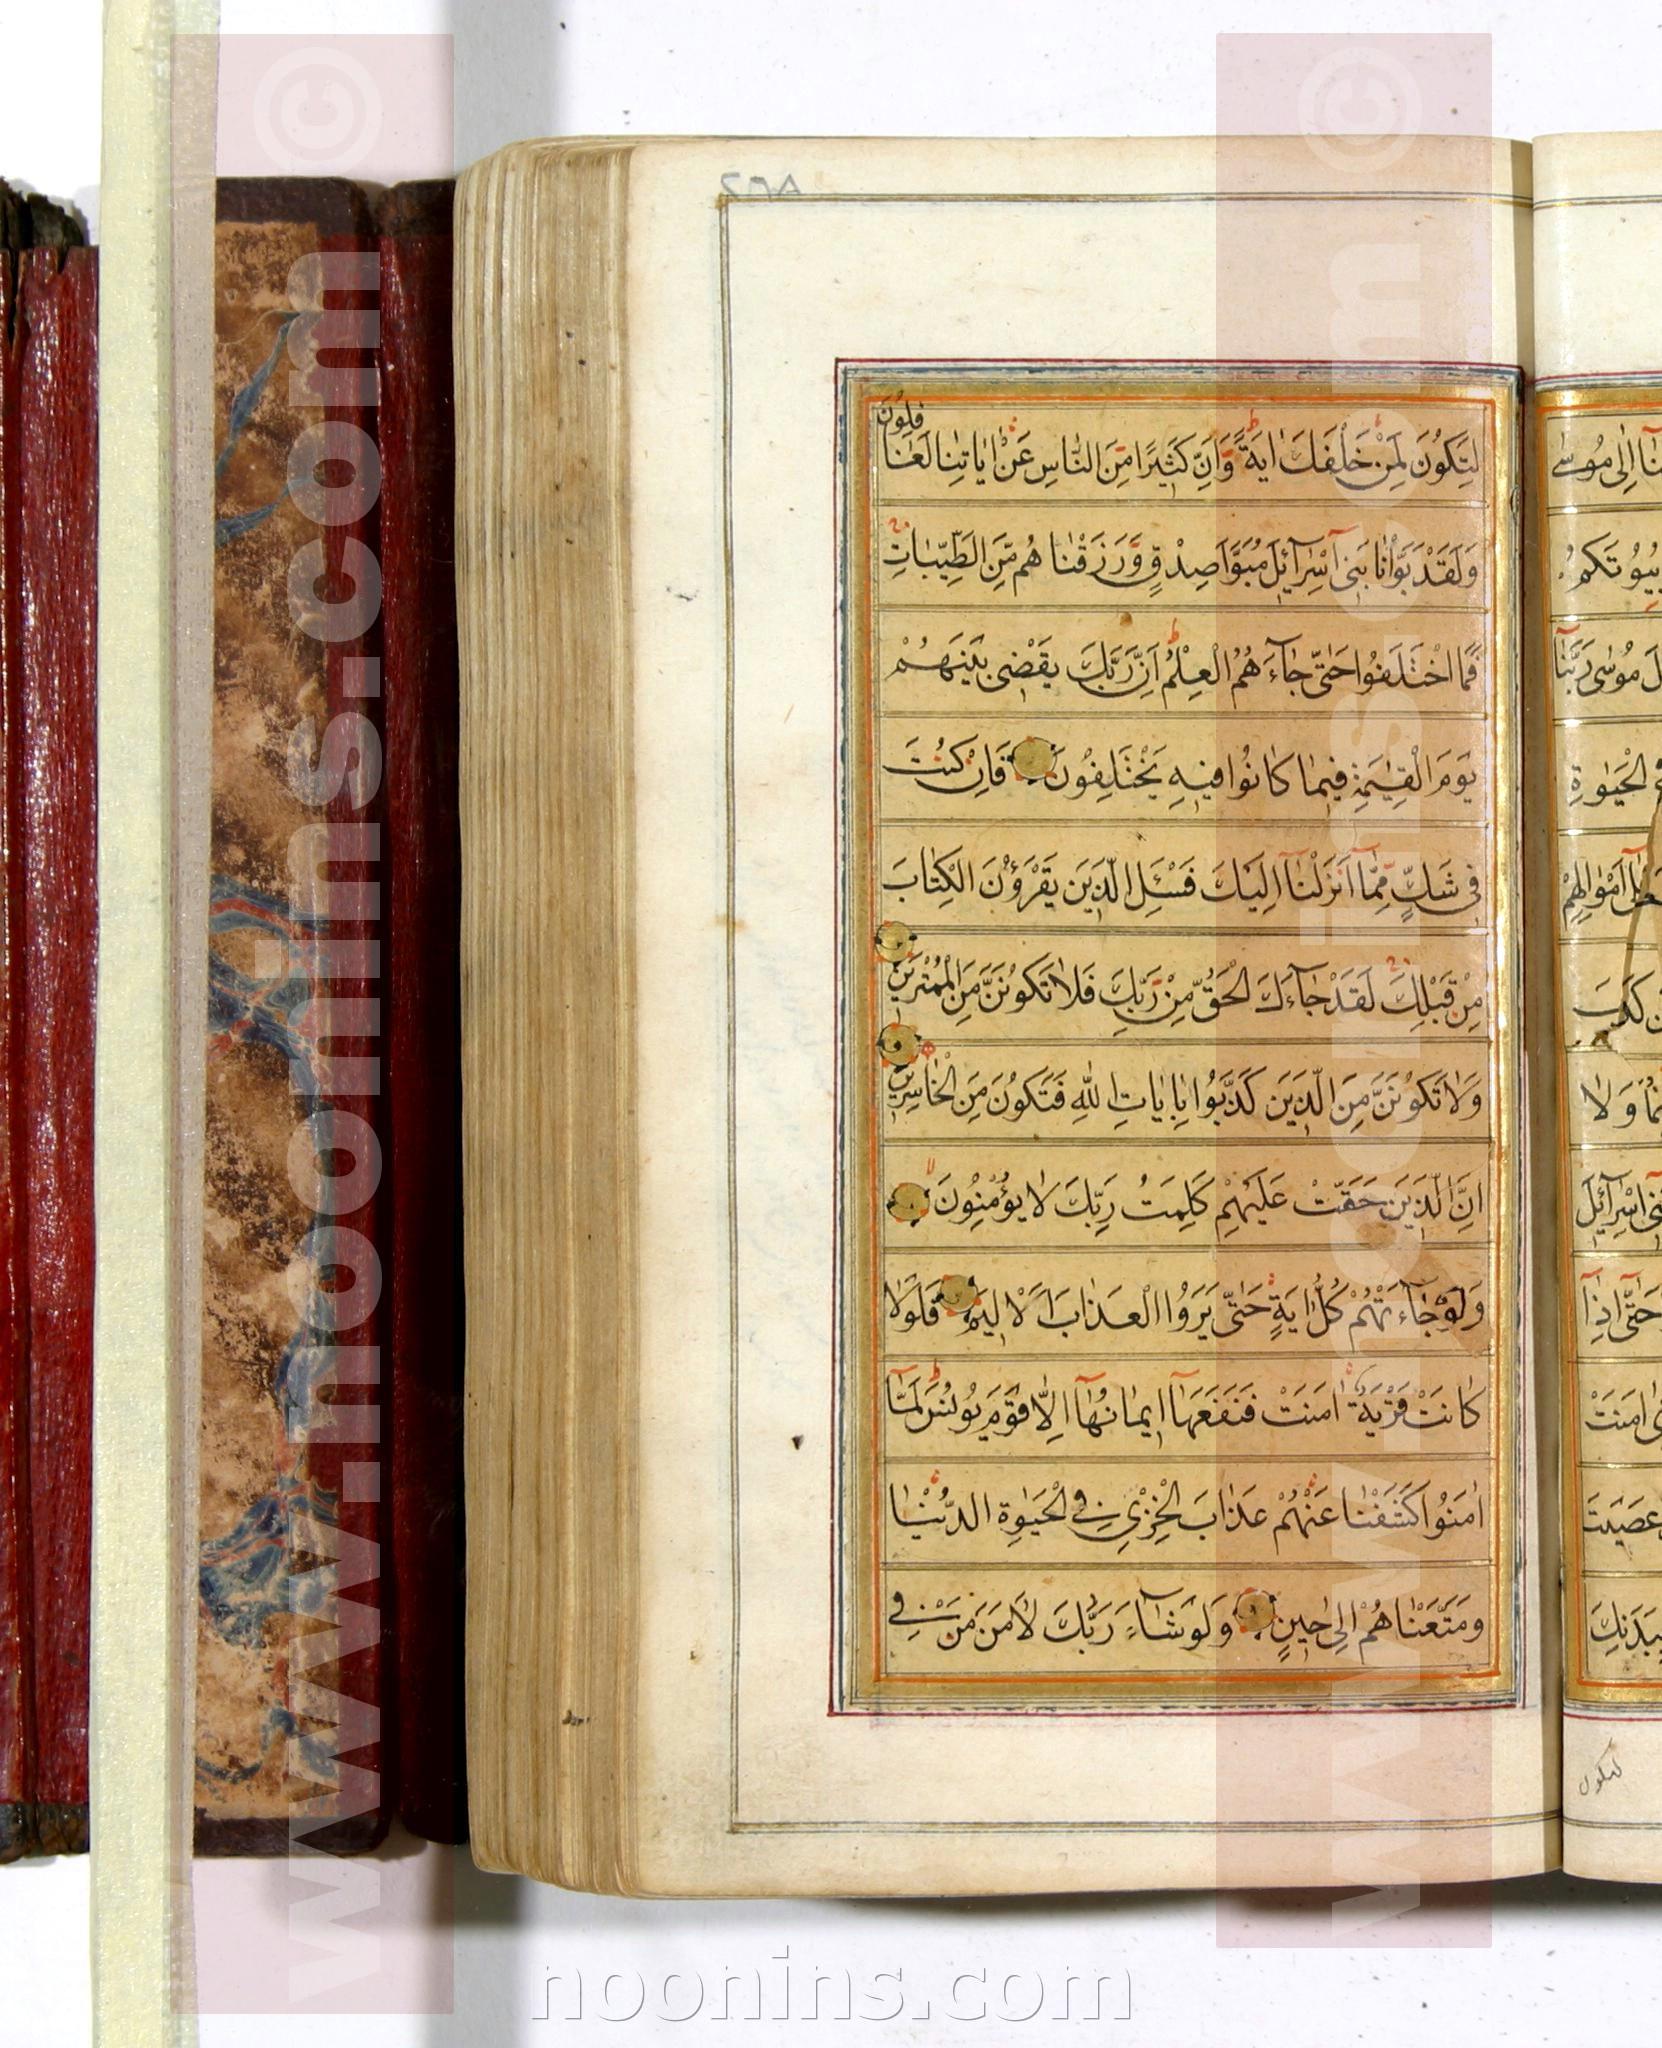 ۲۶۸
لِتَكُونَ لِمَنْ خَلْفَكَ اٰيَةً وَاِنَّ كَثيرًا مِنَ النَّاسِ عَنْ اٰيَاتِنٰا لَغٰافِلُونَ
وَلَقَدْ بَوَّأْنٰا بَنى اِسْرٰآئيلَ مُبَوَّاَ صِدْقٍ وَرَزَقْنٰاهُمْ مِنَ الطَّيِّبٰاتِ
فَمَا اخْتَلَفُوا حَتّٰى جٰآءَهُمُ الْعِلْمُ اِنَّ رَبَّكَ يَقْضى بَيْنَهُمْ
يَوْمَ الْقِيٰمَةِ فيمٰا كٰانُوا فيهِ يَخْتَلِفُونَ فَاِنْ كُنْتَ
فى شَكٍّ مِمّٰآ اَنْزَلْنٰآ اِلَيْكَ فَسْئَلِ الَّذينَ يَقْرَؤُنَ الْكِتٰابَ
مِنْ قَبْلِكَ لَقَدْ جٰآءَكَ الْحَقُّ مِنْ رَبِّكَ فَلاٰ تَكُونَنَّ مِنَ الْمُمْتَرينَ
وَلاٰ تَكُونَنَّ مِنَ الَّذينَ كَذَّبُوا بِاٰيٰاتِ اللّٰهِ فَتَكُونَ مِنَ الْخٰاسِرينَ
اِنَّ الَّذينَ حَقَّتْ عَلَيْهِمْ كَلِمَتُ رَبِّكَ لاٰ يُؤْمِنُونَ
وَلَوْ جٰآءَتْهُمْ كُلُّ اٰيَةٍ حَتّٰى يَرَوُا الْعَذٰابَ الْاَليمَ فَلَوْلاٰ
كٰانَتْ قَرْيَةٌ اٰمَنَتْ فَنَفَعَهٰآ ايمٰانُهٰآ اِلاّٰ قَوْمَ يُونُسَ لَمّٰآ
اٰمَنُوا كَشَفْنٰا عَنْهُمْ عَذٰابَ الْخِزْىِ فِى الْحَيٰوةِ الدُّنْيٰا
وَمَتَّعْنٰاهُمْ اِلٰى حينٍ وَلَوْ شٰآءَ رَبُّكَ لَاٰمَنَ مَنْ فِى
اِلٰى مُوسٰى
بُيُوتَكُمْ
مُوسٰى رَبَّنٰا
الْحَيٰوةِ
اَمْوٰالِهِمْ
وَلاٰ
اِسْرٰآئيلَ
حَتّٰى اِذٰآ
اٰمَنَتْ
عَصَيْتَ
بِبَدَنِكَ
لتكون
www.noonins.com ©
www.noonins.com ©
noonins.com